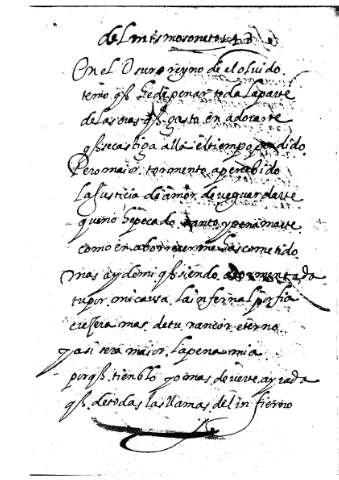 del mismo soneto 43
En el Oscuro reyno de el olvido
temo q̃ he de penar toda la parte
de las oras q̃ gasto en adorarte
q̃ se castiga alla el tiempo perdido
Pero maior tormento apercebido
la Justicia de amor deve guardarte
que no he pecado tanto yo en amarte
como en aborrecerme has cometido
mas ay de mi q̃ siendo atormentada
tu por mi causa, la infernal porfia
cresera mas de tu rancor eterno
y asi sera maior, la pena mia
porq̃ tienblo yo mas de verte ayrada
q̃ de todas las llamas del infierno